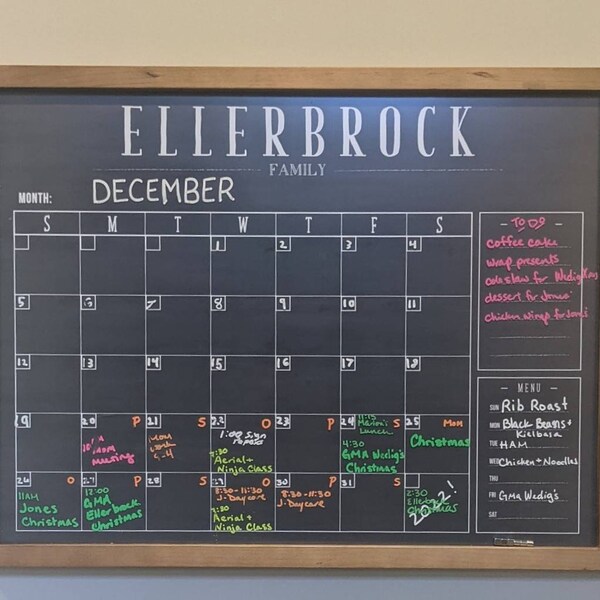 ELLERBROCK
FAMILY
MONTH: DECEMBER
S M T W T F S
1 2 3 4
5 6 7 8 9 10 11
12 13 14 15 16 17 18
19
20 P
mom
meeting
21 S
mom
work
5-4
22 O
1:00 Sign
papers
7:30
Aerial +
Ninja Class
23 P
24 S
11:15
Lunch
4:30
GMA Wedig's
Christmas
25 Mom
Christmas
26 O
11AM
Jones
Christmas
27 P
12:00
GMA
Ellerbrock
Christmas
28 S
29 O
8:30-11:30
J-Daycare
7:30
Aerial +
Ninja Class
30 P
8:30-11:30
J-Daycare
31 S
2:30
Christmas
2022!
- TO DO -
coffee cake
wrap presents
coleslaw for Wedig Xmas
dessert for Jones'
chicken wings for Jones
- MENU -
SUN Rib Roast
MON Black Beans +
Kielbasa
TUE HAM
WED Chicken + Noodles
THU
FRI GMa Wedig's
SAT